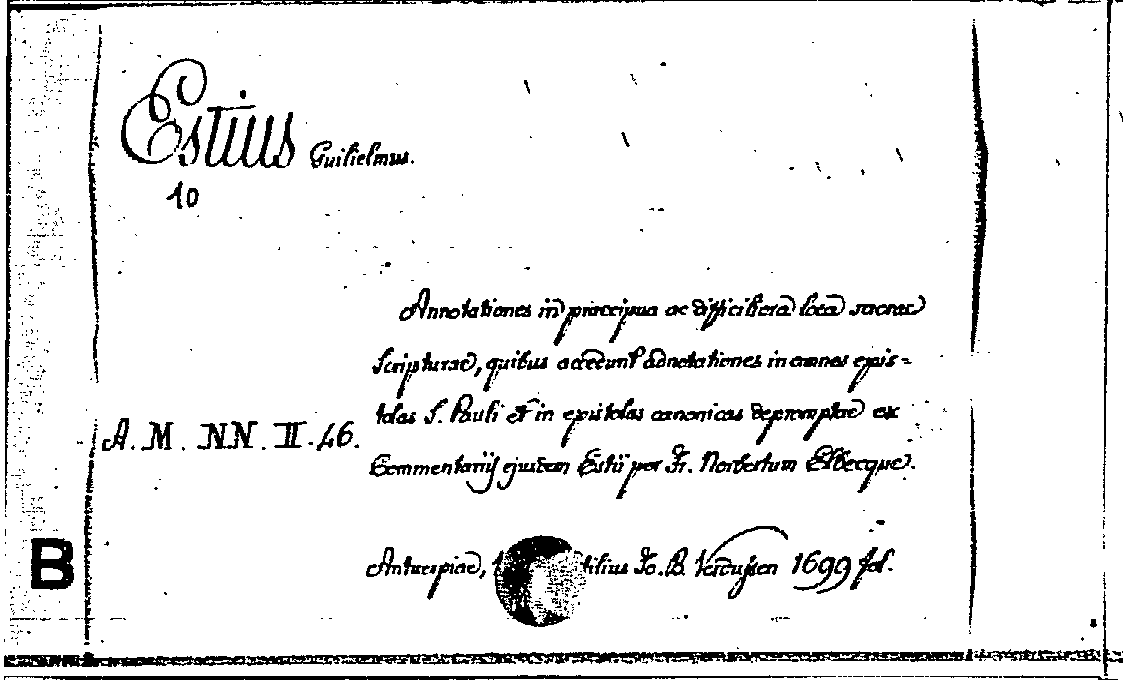 Estius Guilielmus.
10
Annotationes in praecipua ac difficiliora loca sacrae
Scripturae, quibus accedunt adnotationes in omnes epis=
tolas S. Pauli et in epistolas canonicas depromptae ex
A. M. NN. II. 46.
Commentariis ejusdem Estii per Fr. Norbertum Elbecque.
B
Antverpiae, Jo. B. Verdussen 1699 fol.